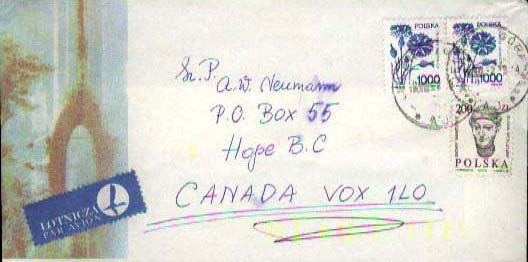 POLSKA
1000
POLSKA
1000
200
POLSKA
Sz.P.
A.W. Neumann
P.O. Box 55
Hope B.C
CANADA VOX 1L0
LOTNICZA
PAR AVION